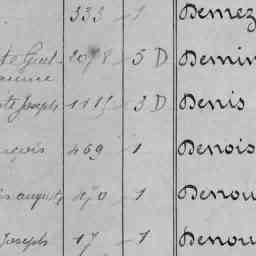 333 1 Demez
2098 5 D Demin
Joseph 1115 3 D Denis
469 1 Denois
august, 470 1 Denou
Joseph 17 1 Denou